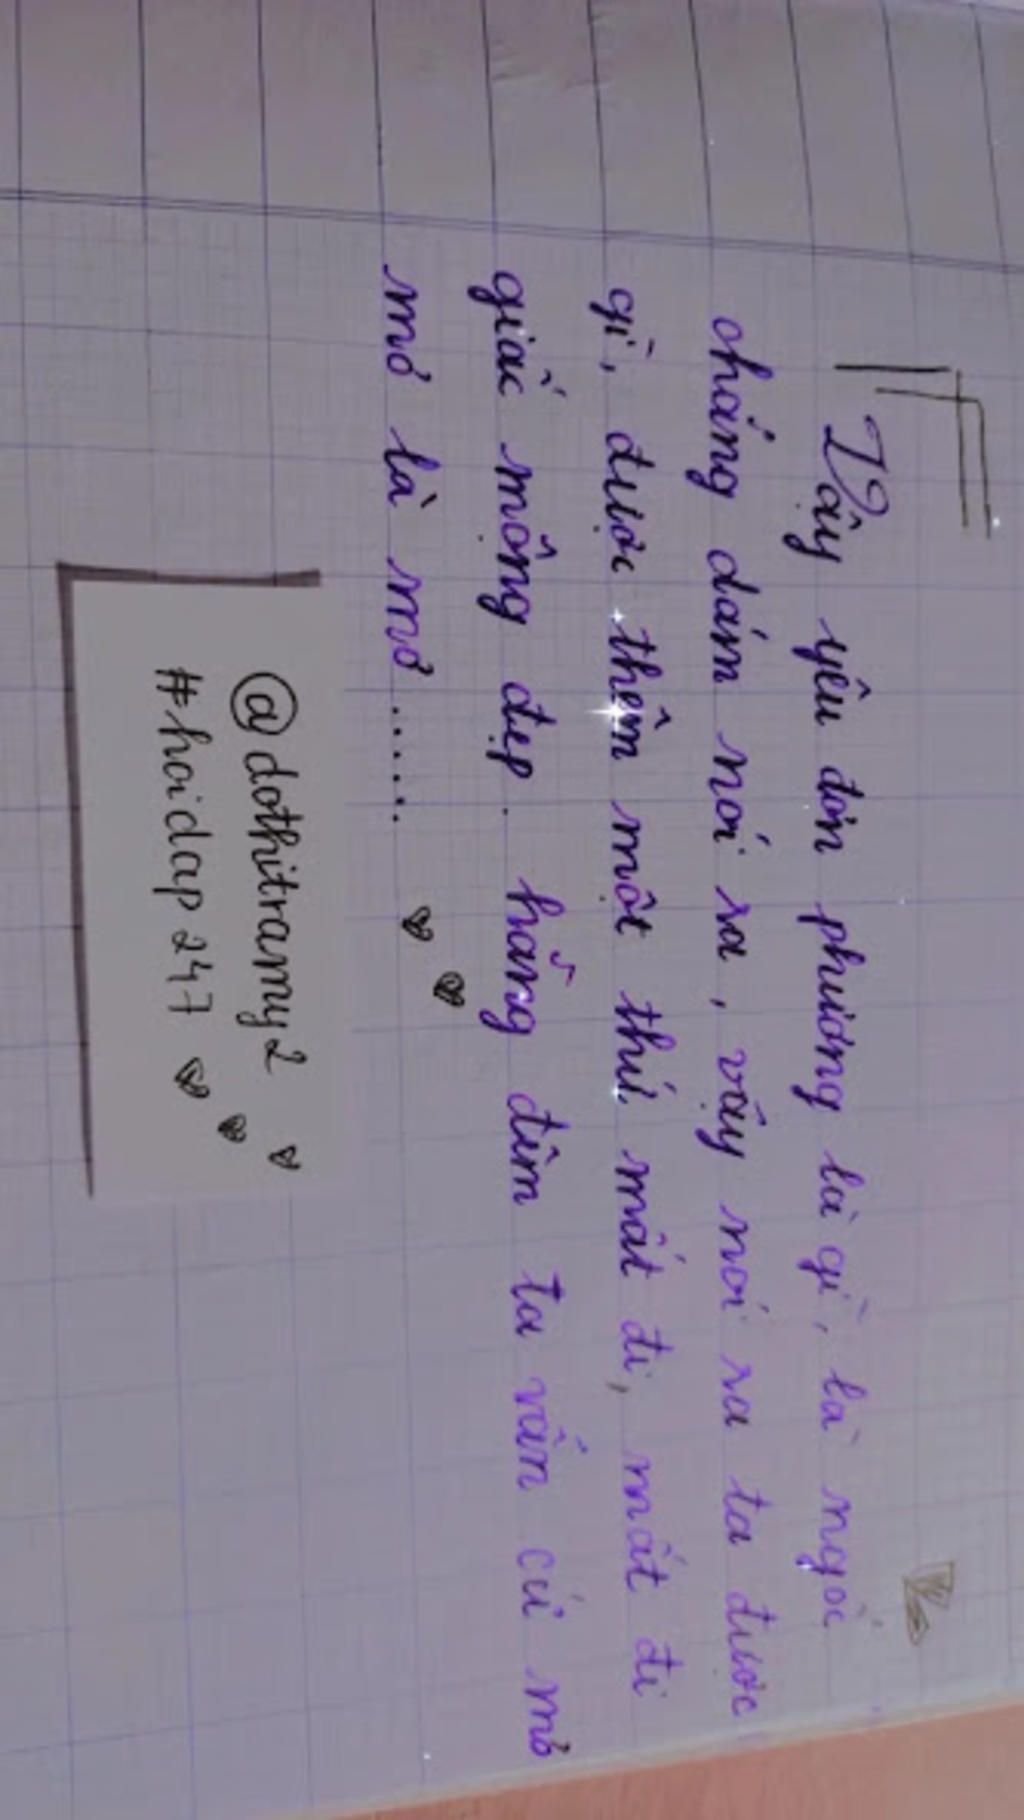 Vậy yêu đơn phương là gì, là ngốc
chẳng dám nói ra, vậy nói ra ta được
gì, được thêm một thứ mất đi, mất đi
giấc mộng đẹp. hằng đêm ta vẫn cứ mơ
mơ là mơ......
@dothitramy2
#hoidap247